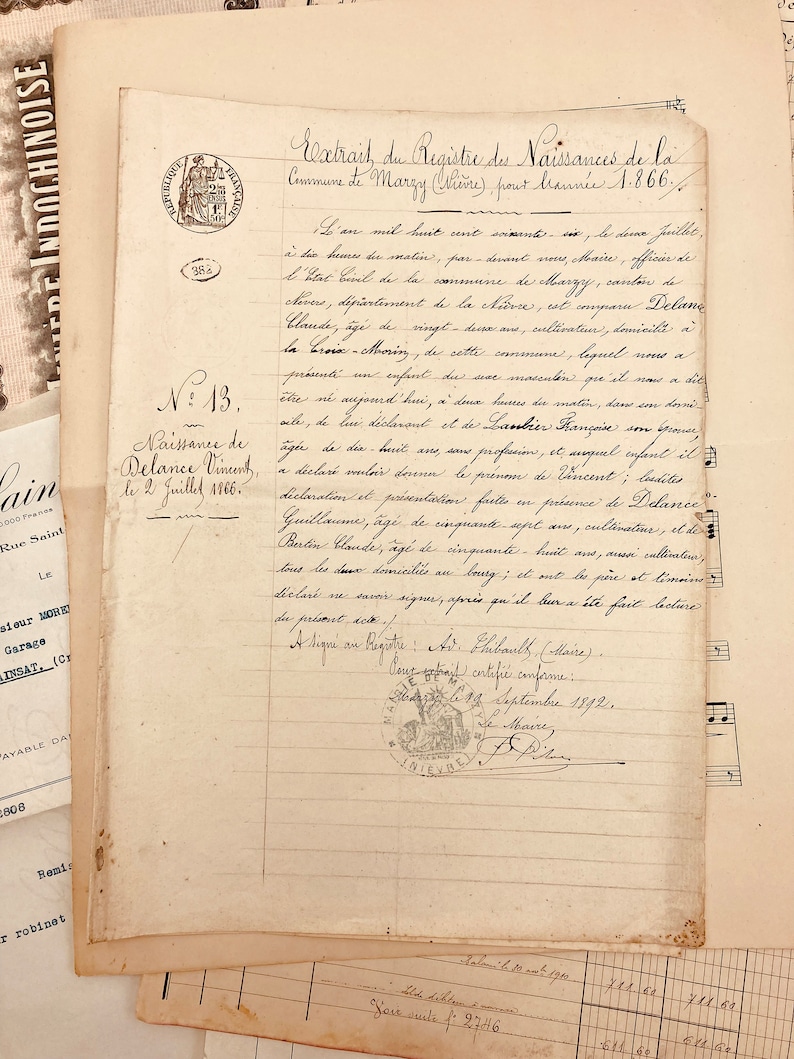 INDOCHINOISE
RÉPUBLIQUE FRANÇAISE
2/10
EN SUS
1F
50c
382
Extrait du Registre des Naissances de la
Commune de Marzy (Nièvre) pour l'année 1.866.
L'an mil huit cent soixante-six, le deux Juillet,
à dix heures du matin, par-devant nous, Maire, officier de
l'Etat Civil de la commune de Marzy, canton de
Nevers, département de la Nièvre, est comparu Delance
Claude, âgé de vingt-deux ans, cultivateur, domicilié à
la Croix-Morin, de cette commune, lequel nous a
présenté un enfant du sexe masculin qu'il nous a dit
être né aujourd'hui, à deux heures du matin, dans son domi-
cile, de lui déclarant et de Laubier Françoise son épouse,
âgée de dix-huit ans, sans profession, et, auquel enfant il
a déclaré vouloir donner le prénom de Vincent; lesdites
déclaration et présentation faites en présence de Delance
Guillaume, âgé de cinquante-sept ans, cultivateur, et de
Bertin Claude, âgé de cinquante-huit ans, aussi cultivateur,
tous les deux domiciliés au bourg; et ont les père et témoins
déclaré ne savoir signer, après qu'il leur a été fait lecture
du présent acte./.
A signé au Registre: Ad. Thibault, (Maire).
Pour extrait certifié conforme:
Marzy, le 19 Septembre 1892.
Le Maire,
MAIRIE DE MARZY
(NIÈVRE)
No 13.
Naissance de
Delance Vincent,
le 2 Juillet 1866.
ain
0.000 Francs
Rue Saint
LE
sieur MORE
Garage
AINSAT. (Cr
PAYABLE DA
2808
Remis
r robinet
le 20 août 1910
711 60
711 60
Voir suite fo 2746
611 60
611 60